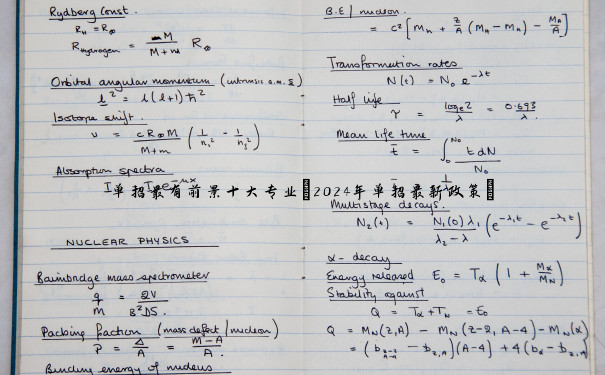 Rydberg Const.
R_H = R_∞
R_Hydrogen = M / (M + m) R_∞
Orbital angular momentum (intrinsic a.m. s)
l² = l(l+1)ħ²
Isotope shift.
υ = cR_∞M / (M+m) (1/n₁² - 1/n₂²)
Absorption spectra
I = I₀e^-μx
NUCLEAR PHYSICS
Bainbridge mass spectrometer
q/m = 2V / B²DS.
Packing fraction (mass defect/nucleon)
P = Δ/A = (M-A)/A.
Binding energy of nucleus
单招最有前景十大专业 2024年单招最新政策
B.E / nucleon.
= c² [M_n + Z/A (M_H - M_n) - M_A/A]
Transformation rates
N(t) = N₀ e^-λt
Half life
τ = log_e 2 / λ = 0.693 / λ.
Mean life time
t̄ = ∫₀^N₀ t dN / N₀
1/λ
Multistage decays.
N₂(t) = N₁(0) λ₁ / (λ₂ - λ) . (e^-λ₁t - e^-λ₂t)
α - decay
Energy released E₀ = T_α (1 + M_α/M_N)
Stability against
Q = T_α + T_N = E₀
Q = M_N(Z,A) - M_N(Z-2, A-4) - M_N(α)
= (b_Z-2,A-4 - b_Z,A)(A-4) + 4(b_α - b_Z,A)